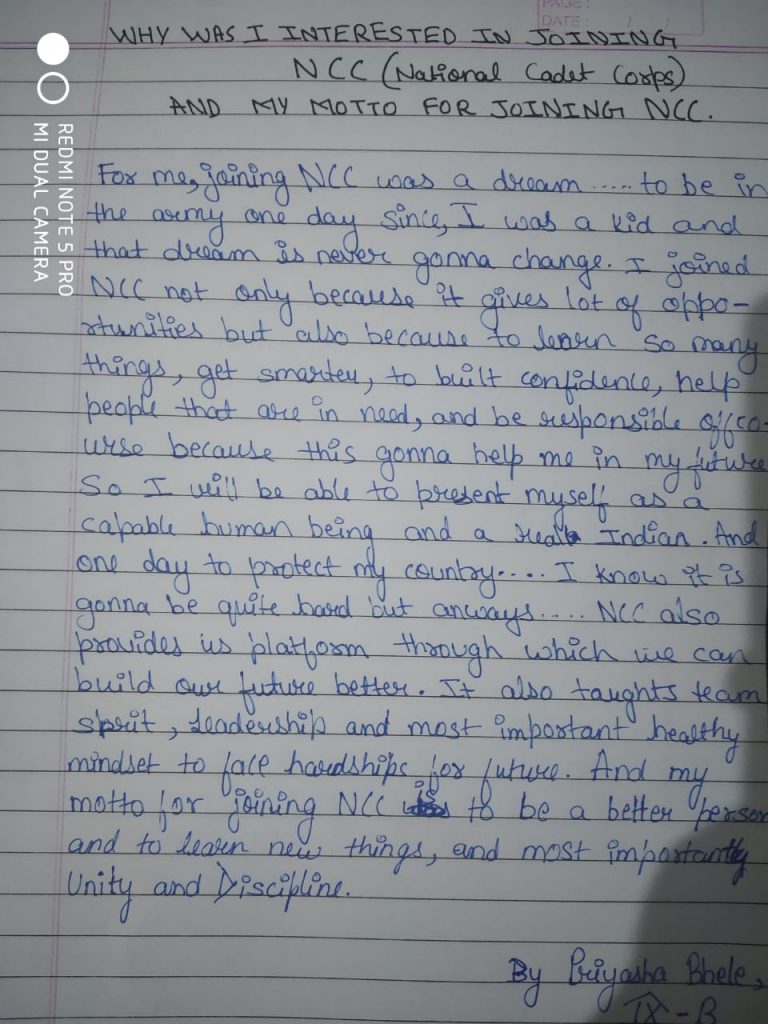 PAGE:
DATE: / /
WHY WAS I INTERESTED IN JOINING
NCC (National Cadet Corps)
AND MY MOTTO FOR JOINING NCC.
For me, joining NCC was a dream ..... to be in
the army one day since, I was a kid and
that dream is never gonna change. I joined
NCC not only because it gives lot of oppo-
rtunities but also because to learn so many
things, get smarter, to built confidence, help
people that are in need, and be responsible offco-
urse because this gonna help me in my future
So I will be able to present myself as a
capable human being and a real Indian. And
one day to protect my country.... I know it is
gonna be quite hard but anways.... NCC also
provides us platform through which we can
build our future better. It also taughts team
sprit, leadership and most important healthy
mindset to face hardships for future. And my
motto for joining NCC is to be a better person
and to learn new things, and most importantly
Unity and Discipline.
By Priyasha Bhele,
IX - B
REDMI NOTE 5 PRO
MI DUAL CAMERA